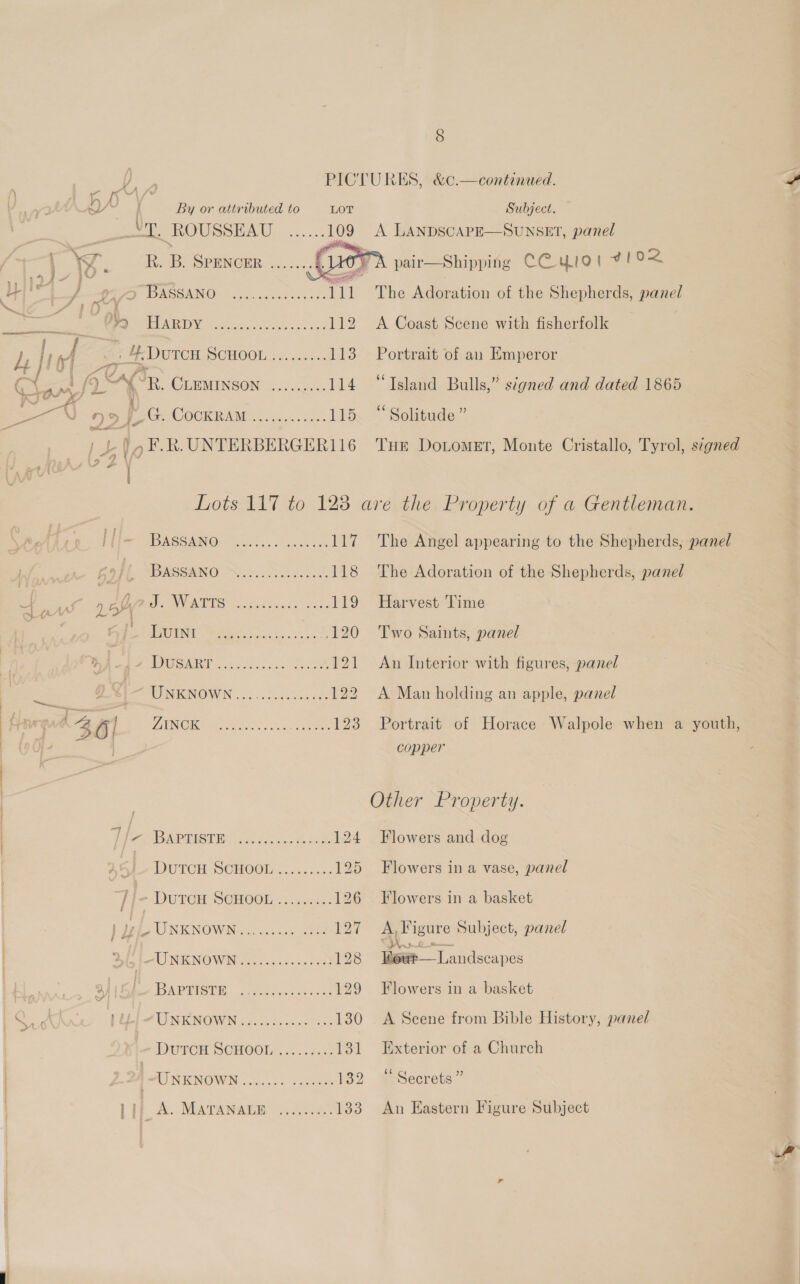 8
PICTURES, &c.—continued.
By or attributed to LOT Subject.
T. ROUSSEAU ...... 109 A LANDSCAPE—SUNSET, panel
R. B. SPENCER ....... 110 A pair—Shipping CC 4101 & 102
BASSANO ............... 111 The Adoration of the Shepherds, panel
HARDY .................. 112 A Coast Scene with fisherfolk
DUTCH SCHOOL ......... 113 Portrait of an Emperor
R. CLEMINSON ......... 114 “Island Bulls,” signed and dated 1865
G. COCKRAM ............ 115 “Solitude”
F. R. UNTERBERGER116 THE DOLOMET, Monte Cristallo, Tyrol, signed
Lots 117 to 123 are the Property of a Gentleman.
BASSANO ............... 117 The Angel appearing to the Shepherds, panel
BASSANO ............... 118 The Adoration of the Shepherds, panel
J. WATTS ............... 119 Harvest Time
LUINI .................. 120 Two Saints, panel
DUSART .................. 121 An Interior with figures, panel
UNKNOWN ............... 122 A Man holding an apple, panel
ZINCK .................. 123 Portrait of Horace Walpole when a youth,
copper
Other Property.
BAPTISTE ............... 124 Flowers and dog
DUTCH SCHOOL ......... 125 Flowers in a vase, panel
DUTCH SCHOOL ......... 126 Flowers in a basket
UNKNOWN ............... 127 A Figure Subject, panel
UNKNOWN ............... 128 Four—Landscapes
BAPTISTE ............... 129 Flowers in a basket
UNKNOWN ............... 130 A Scene from Bible History, panel
DUTCH SCHOOL ......... 131 Exterior of a Church
UNKNOWN ............... 132 “Secrets”
A. MATANALE ......... 133 An Eastern Figure Subject